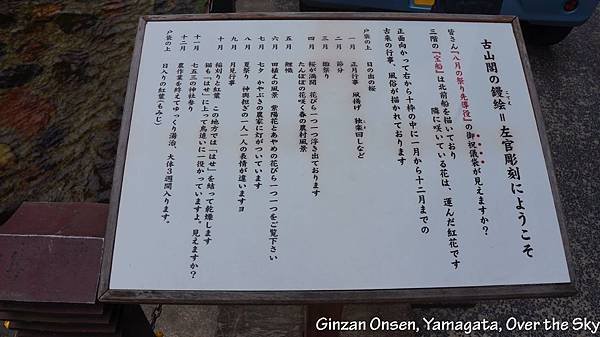 古山閣の鏝絵＝左官彫刻にようこそ
こてえ
皆さん「八月の祭り先導役」の御祝儀袋が見えますか？
三階の『宝船』は北前船を描いており
隣に咲いている花は、運んだ紅花です
正面向かって右から十枠の中に一月から十二月までの
古来の行事、風俗が描かれております
戸袋の上　日の出の桜
一月　正月行事　凧揚げ　独楽回しなど
二月　節分
三月　雛祭り
四月　桜が満開　花びら一つ一つ浮き出ております
たんぽぽの花咲く春の農村風景
五月　鯉幟
六月　田植えの風景　紫陽花とあやめの花びら一つ一つをご覧下さい
七月　七夕　かやぶきの農家に灯がついています
八月　夏祭り　神輿担ぎの一人一人の表情が違いますヨ
九月　月見行事
十月　稲刈りと紅葉　この地方では「はせ」を結って乾燥します
猫も「はせ」に上って鳥追いに一役かっていますよ。見えますか？
十一月　七五三の神社参り
十二月　農作業を終えてゆっくり湯治、大体３週間入ります。
戸袋の上　日入りの紅葉（もみじ）
Ginzan Onsen, Yamagata, Over the Sky